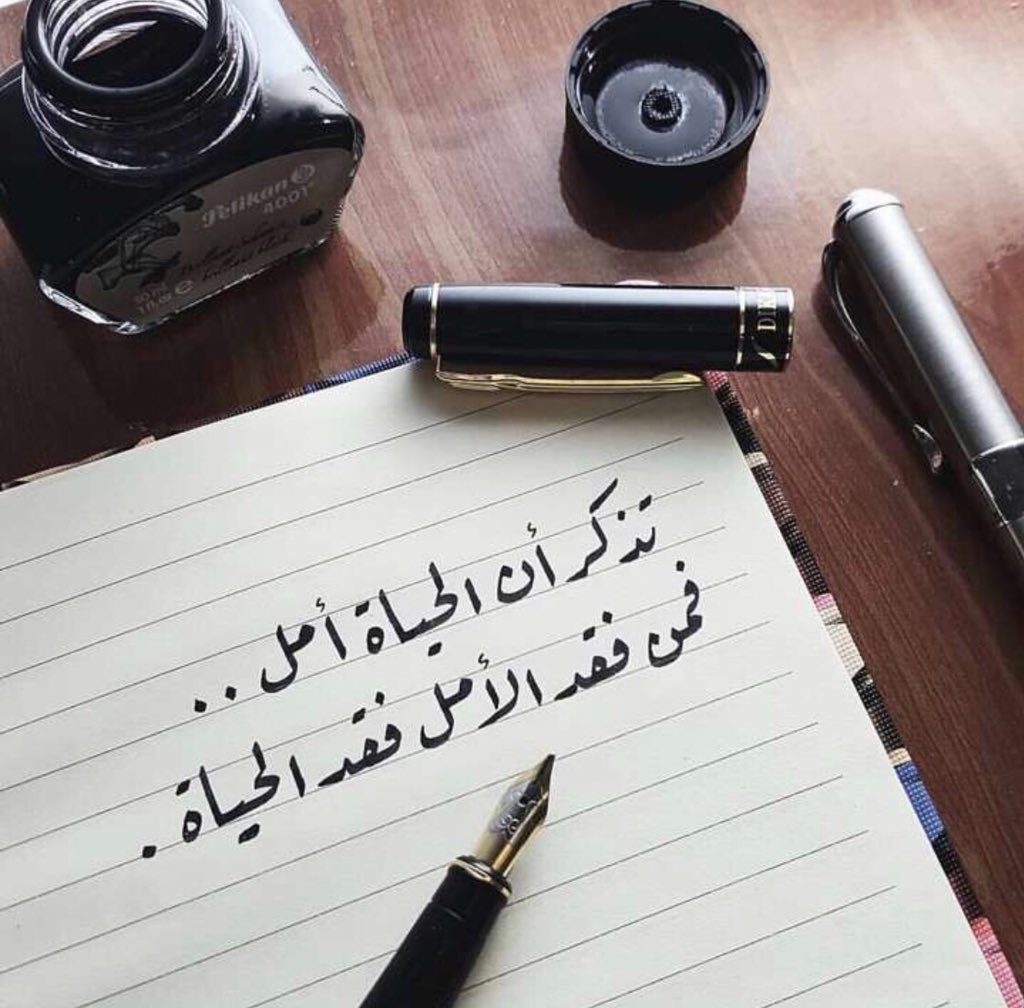 pelikan
4001
brillant black
تذكر أن الحياة أمل ..
فمن فقد الأمل فقد الحياة .